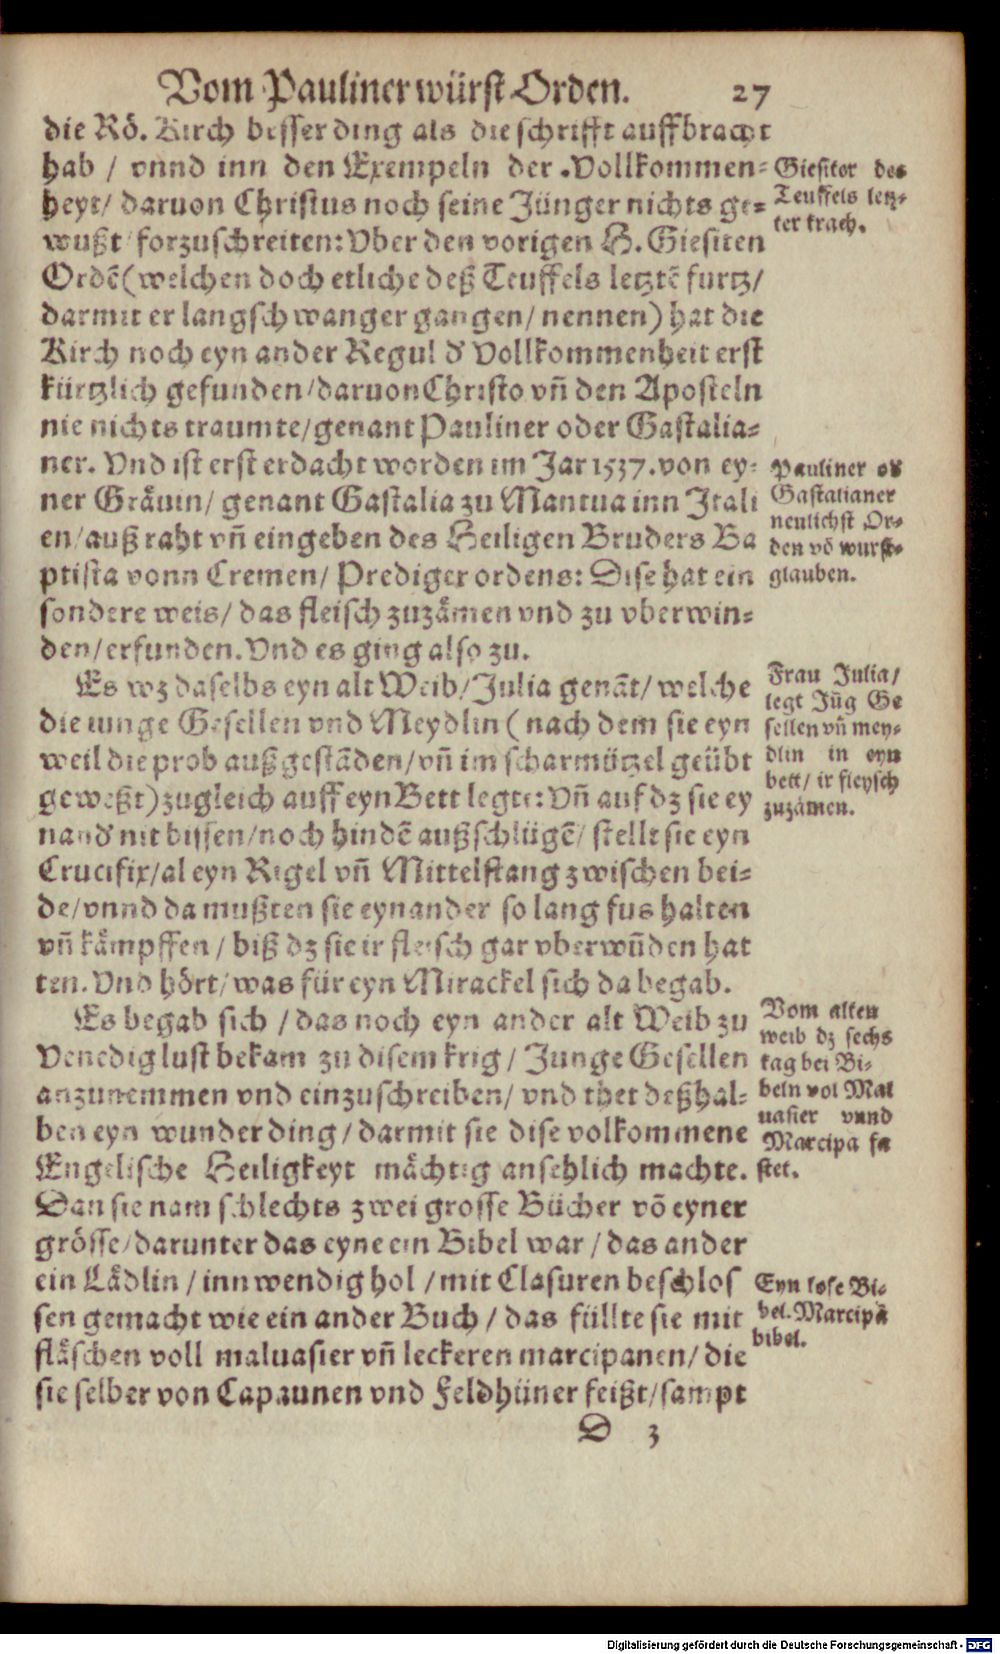 Vom Pauliner würst Orden. 27
die Rö. Kirch besser ding als die schrifft auffbracht
hab / vnnd inn den Exempeln der Vollkommen-
heyt / daruon Christus noch seine Jünger nichts ge-
wußt forzuschreiten: Vber den vorigen H. Giesiten
Ordē (welchen doch etliche deß Teuffels letztē furtz /
darmit er lang schwanger gangen / nennen) hat die
Kirch noch eyn ander Regul d' Vollkommenheit erst
kürtzlich gefunden / daruon Christo vñ den Aposteln
nie nichts traumte / genant Pauliner oder Gastalia-
ner. Vnd ist erst erdacht worden im Jar 1537. von ey-
ner Gräuin / genant Gastalia zu Mantua inn Itali
en / auß raht vñ eingeben des Heiligen Bruders Ba
ptista vonn Cremen / Prediger ordens: Dise hat ein
sondere weis / das fleisch zuzämen vnd zu vberwin-
den / erfunden. Vnd es ging also zu.
Es wz daselbs eyn alt Weib / Julia genāt / welche
die iunge Gesellen vnd Meydlin ( nach dem sie eyn
weil die prob außgestāden / vñ im scharmützel geübt
geweßt) zugleich auff eyn Bett legte: Vñ auf dz sie ey
nand' nit bissen / noch hindē außschlügē / stellt sie eyn
Crucifix / al eyn Rigel vñ Mittelstang zwischen bei-
de / vnnd da mußten sie eynander so lang fus halten
vñ kämpffen / biß dz sie ir fleisch gar vberwūden hat
ten. Vnd hört / was für eyn Mirackel sich da begab.
Es begab sich / das noch eyn ander alt Weib zu
Venedig lust bekam zu disem krig / Junge Gesellen
anzunemmen vnd einzuschreiben / vnd thet deßhal-
ben eyn wunder ding / darmit sie dise volkommene
Engelische Heiligkeyt mächtig ansehlich machte.
Dan sie nam schlechts zwei grosse Bücher vō eyner
grösse / darunter das eyne ein Bibel war / das ander
ein Lädlin / innwendig hol / mit Clasuren beschlos
sen gemacht wie ein ander Buch / das füllte sie mit
fläschen voll maluasier vñ leckeren marcipanen / die
sie selber von Capaunen vnd Feldhüner feißt / sampt
D 3
Giesiter des
Teuffels letz-
ter krach.
Pauliner od'
Gastalianer
neulichst Or-
den vō wurst-
glauben.
Frau Julia /
legt Jūg Ge
sellen vñ mey-
dlin in eyn
bett / ir fleysch
zuzämen.
Vom alten
weib dz sechs
tag bei Bi-
beln vol Mal
uasier vnnd
Marcipā fa
stet.
Eyn lose Bi-
bel. Marcipā
bibel.
Digitalisierung gefördert durch die Deutsche Forschungsgemeinschaft - DFG